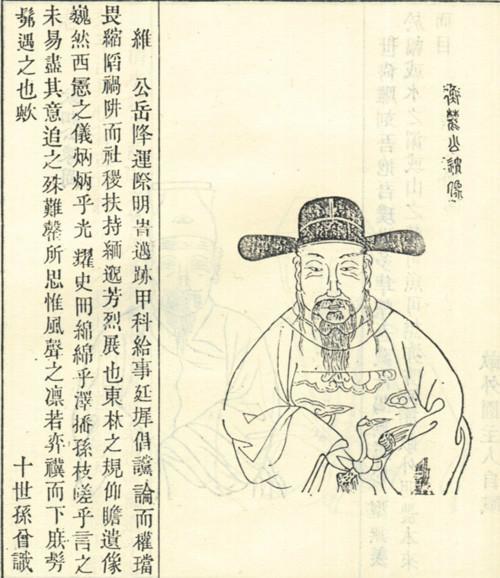 維　公岳降運際明旹邁跡甲科給事廷墀倡讜論而權璫
畏縮陷禍阱而社稷扶持緬邈芳烈展也東林之規仰瞻遺像
巍然西之儀炳炳乎光耀史冊綿綿乎澤播孫枝嗟乎言之
未易盡其意追之殊難罄所思惟風聲之凜若弈禩而下庶髣
髴遇之也歟　十世孫識